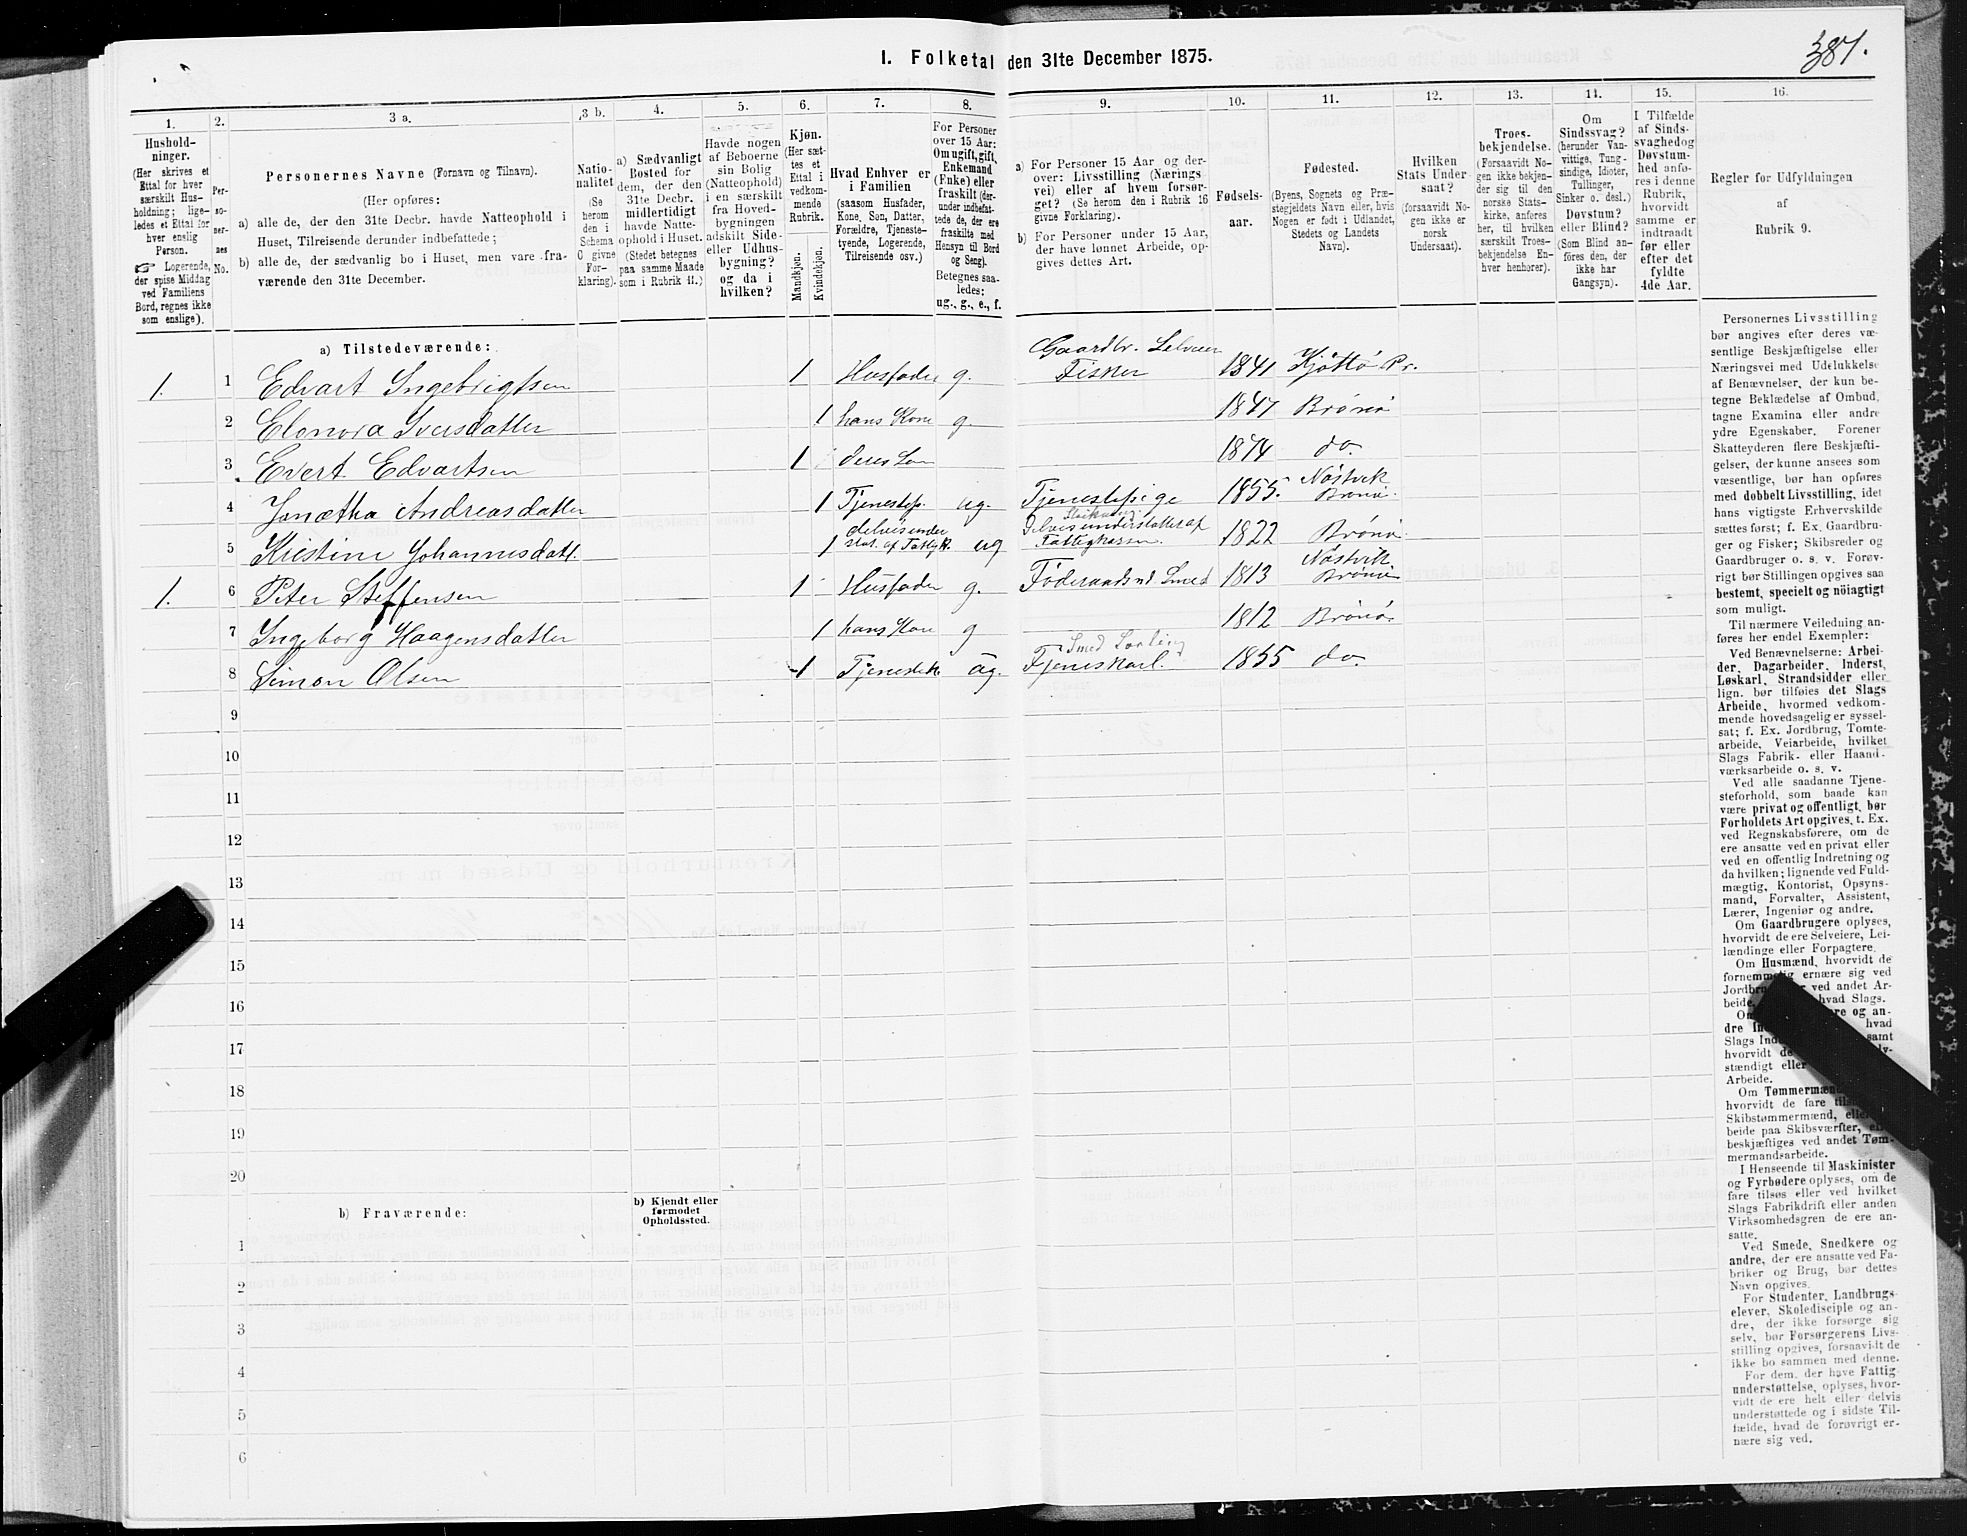 I. Folketal den 31te December 1875.
381.
1.
2.
3 a.
3 b.
4.
5.
6.
7.
8.
9.
10.
11.
12.
13.
14.
15.
16.
Hushold-
ninger.
(Her skrives et
Ettal for hver
særskilt Hus-
holdning; lige-
ledes et Ettal for
hver enslig
Person.
☞ Logerende,
der spise Middag
ved Familiens
Bord, regnes ikke
som enslige).
Per-
so-
ner-
nes
No.
Personernes Navne (Fornavn og Tilnavn).
(Her opføres:
a) alle de, der den 31te Decbr. havde Natteophold i
Huset, Tilreisende derunder indbefattede;
b) alle de, der sædvanlig bo i Huset, men vare fra-
værende den 31te December.
Natio-
nalitet
(Se
herom
den i
Schema
C givne
For-
klaring).
a) Sædvanligt
Bosted for
dem, der den
31te Decbr.
midlertidigt
havde Natte-
ophold i Huset.
(Stedet betegnes
paa samme Maade
som i Rubrik 11.)
Havde nogen
af Beboerne
sin Bolig
(Natteophold)
i en særskilt
fra Hoved-
bygningen
adskilt Side-
eller Udhus-
bygning?
og da i
hvilken?
Kjøn.
(Her sæt-
tes et
Ettal i
vedkom-
mende
Rubrik.
Mandkjøn.
Kvindekjøn.
Hvad Enhver er
i Familien
(saasom Husfader,
Kone, Søn, Datter,
Forældre, Tjeneste-
tyende, Logerende,
Tilreisende osv.)
For Personer
over 15 Aar:
Om ugift, gift,
Enkemand
(Enke) eller
fraskilt (der-
under indbefat-
tede de, der ere
fraskilte med
Hensyn til Bord
og Seng).
Betegnes saa-
ledes:
ug., g., e., f.
a) For Personer 15 Aar og der-
over: Livsstilling (Nærings
vei) eller af hvem forsør-
get? (Se herom den i Rubrik 16
givne Forklaring).
b) For Personer under 15 Aar,
der have lønnet Arbeide, op-
gives dettes Art.
Fødsels-
aar.
Fødested.
(Byens, Sognets og Præ-
stegjeldets Navn eller, hvis
Nogen er født i Udlandet,
Stedets og Landets
Navn).
Hvilken
Stats Under
saat?
(forsaavidt No-
gen ikke er
norsk
Undersaat).
Troes-
bekjendelse.
(Forsaavidt No-
gen ikke bekjen-
der sig til den
norske Stats-
kirke, anføres
her, til hvilken
særskilt Troes-
bekjendelse En-
hver henhører).
Om
Sindssvag?
(herunder Van-
vittige, Tung-
sindige, Idioter,
Tullinger,
Sinker o. desl.)
Døvstum?
eller Blind?
(Som Blind an-
føres den, der
ikke har
Gangsyn).
I Tilfælde
af Sinds-
svaghed og
Døvstum-
hed anfø-
res i denne
Rubrik,
hvorvidt
samme er
indtraadt
før eller
efter det
fyldte
4de Aar.
Regler for Udfyldningen
af
Rubrik 9.
a) Tilstedeværende:
1. 1 Edvart Ingebrigtsen 1 Husfader g. Gaardbr. Selveier
Fisker 1841 Kjøttø Pr.
2 Elonora Iversdatter 1 hans Kone g. 1847 Brønø
3 Evert Edvartsen 1 deres Søn 1874 do.
4 Jonætha Andreasdatter 1 Tjenestep. ug. Tjenestepige 1855. Nøstvik
Brønø.
5 Kristine Johannesdatt. 1 delvis under
støt. af Fattigk. ug Delvis understøttet af
Fattigkassen. 1822 Brønø
1. 6 Peter Steffensen 1 Husfader g. Føderaadsmd Smed 1813 Nøstvik
Brønø
7 Ingeborg Haagensdatter 1 hans Kone g 1812 Brønø.
8 Simon Olsen 1 Tjenestek. ug. Smed Lærling
Tjenestkarl. 1855 do.
9
10
11
12
13
14
15
16
17
18
19
20
b) Fraværende:
b) Kjendt eller
formodet
Opholdssted.
1
2
3
4
5
6
Personernes Livsstilling
bør angives efter deres væ-
sentlige Beskjæftigelse eller
Næringsvei med Udelukkelse
af Benævnelser, der kun be-
tegne Beklædelse af Ombud,
tagne Examina eller andre
ydre Egenskaber. Forener
Skatteyderen flere Beskjæfti-
gelser, der kunne ansees som
væsentlige, bør han opføres
med dobbelt Livsstilling, idet
hans vigtigste Erhvervskilde
sættes først; f. Ex. Gaardbru-
ger og Fisker; Skibsreder og
Gaardbruger o. s. v. Forøv-
rigt bør Stillingen opgives saa
bestemt, specielt og nøiagtigt
som muligt.
Til nærmere Veiledning an-
føres her endel Exempler:
Ved Benævnelserne: Arbei-
der, Dagarbeider, Inderst,
Løskarl, Strandsidder eller
lign. bør tilføies det Slags
Arbeide, hvormed vedkom-
mende hovedsagelig er syssel-
sat; f. Ex. Jordbrug, Tomte-
arbeide, Veiarbeide, hvilket
Slags Fabrik- eller Haand-
værksarbeide o. s. v.
Ved alle saadanne Tjene-
steforhold, som baade kan
være privat og offentligt, bør
Forholdets Art opgives, t. Ex.
ved Regnskabsførere, om de
ere ansatte ved en privat eller
ved en offentlig Indretning og
da hvilken; lignende ved Fuld-
mægtig, Kontorist, Opsyns-
mand, Forvalter, Assistent,
Lærer, Ingeniør og andre.
Om Gaardbrugere oplyses,
hvorvidt de ere Selveiere, Lei-
lændinge eller Forpagtere.
Om Husmænd, hvorvidt de
fornemmelig ernære sig ved
ved andet Ar-
hvad Slags.
hvad
samt
hvorvidt
stændigt eller
Arbeide.
Om Tømmermænd
hvorvidt de fare
Skibstømmermænd,
beide paa Skibsværfter,
beskjæftiges ved andet Tøm-
mermandsarbeide.
I Henseende til Maskinister
og Fyrbødere oplyses, om de
fare tilsøs eller ved hvilket
Slags Fabrikdrift eller anden
Virksomhedsgren de ere an-
satte.
Ved Smede, Snedkere og
andre, der ere ansatte ved Fa-
briker og Brug, bør dettes
Navn opgives.
For Studenter, Landbrugs-
elever, Skoledisciple og an-
dre, der ikke forsørge sig
selv, bør Forsørgerens Livs-
stilling opgives, forsaavidt de
ikke bo sammen med denne.
For dem, der have Fattig-
understøttelse, oplyses, hvor-
vidt de ere helt eller delvis
understøttede og i sidste Til-
fælde, hvad de forøvrigt er-
nære sig ved.